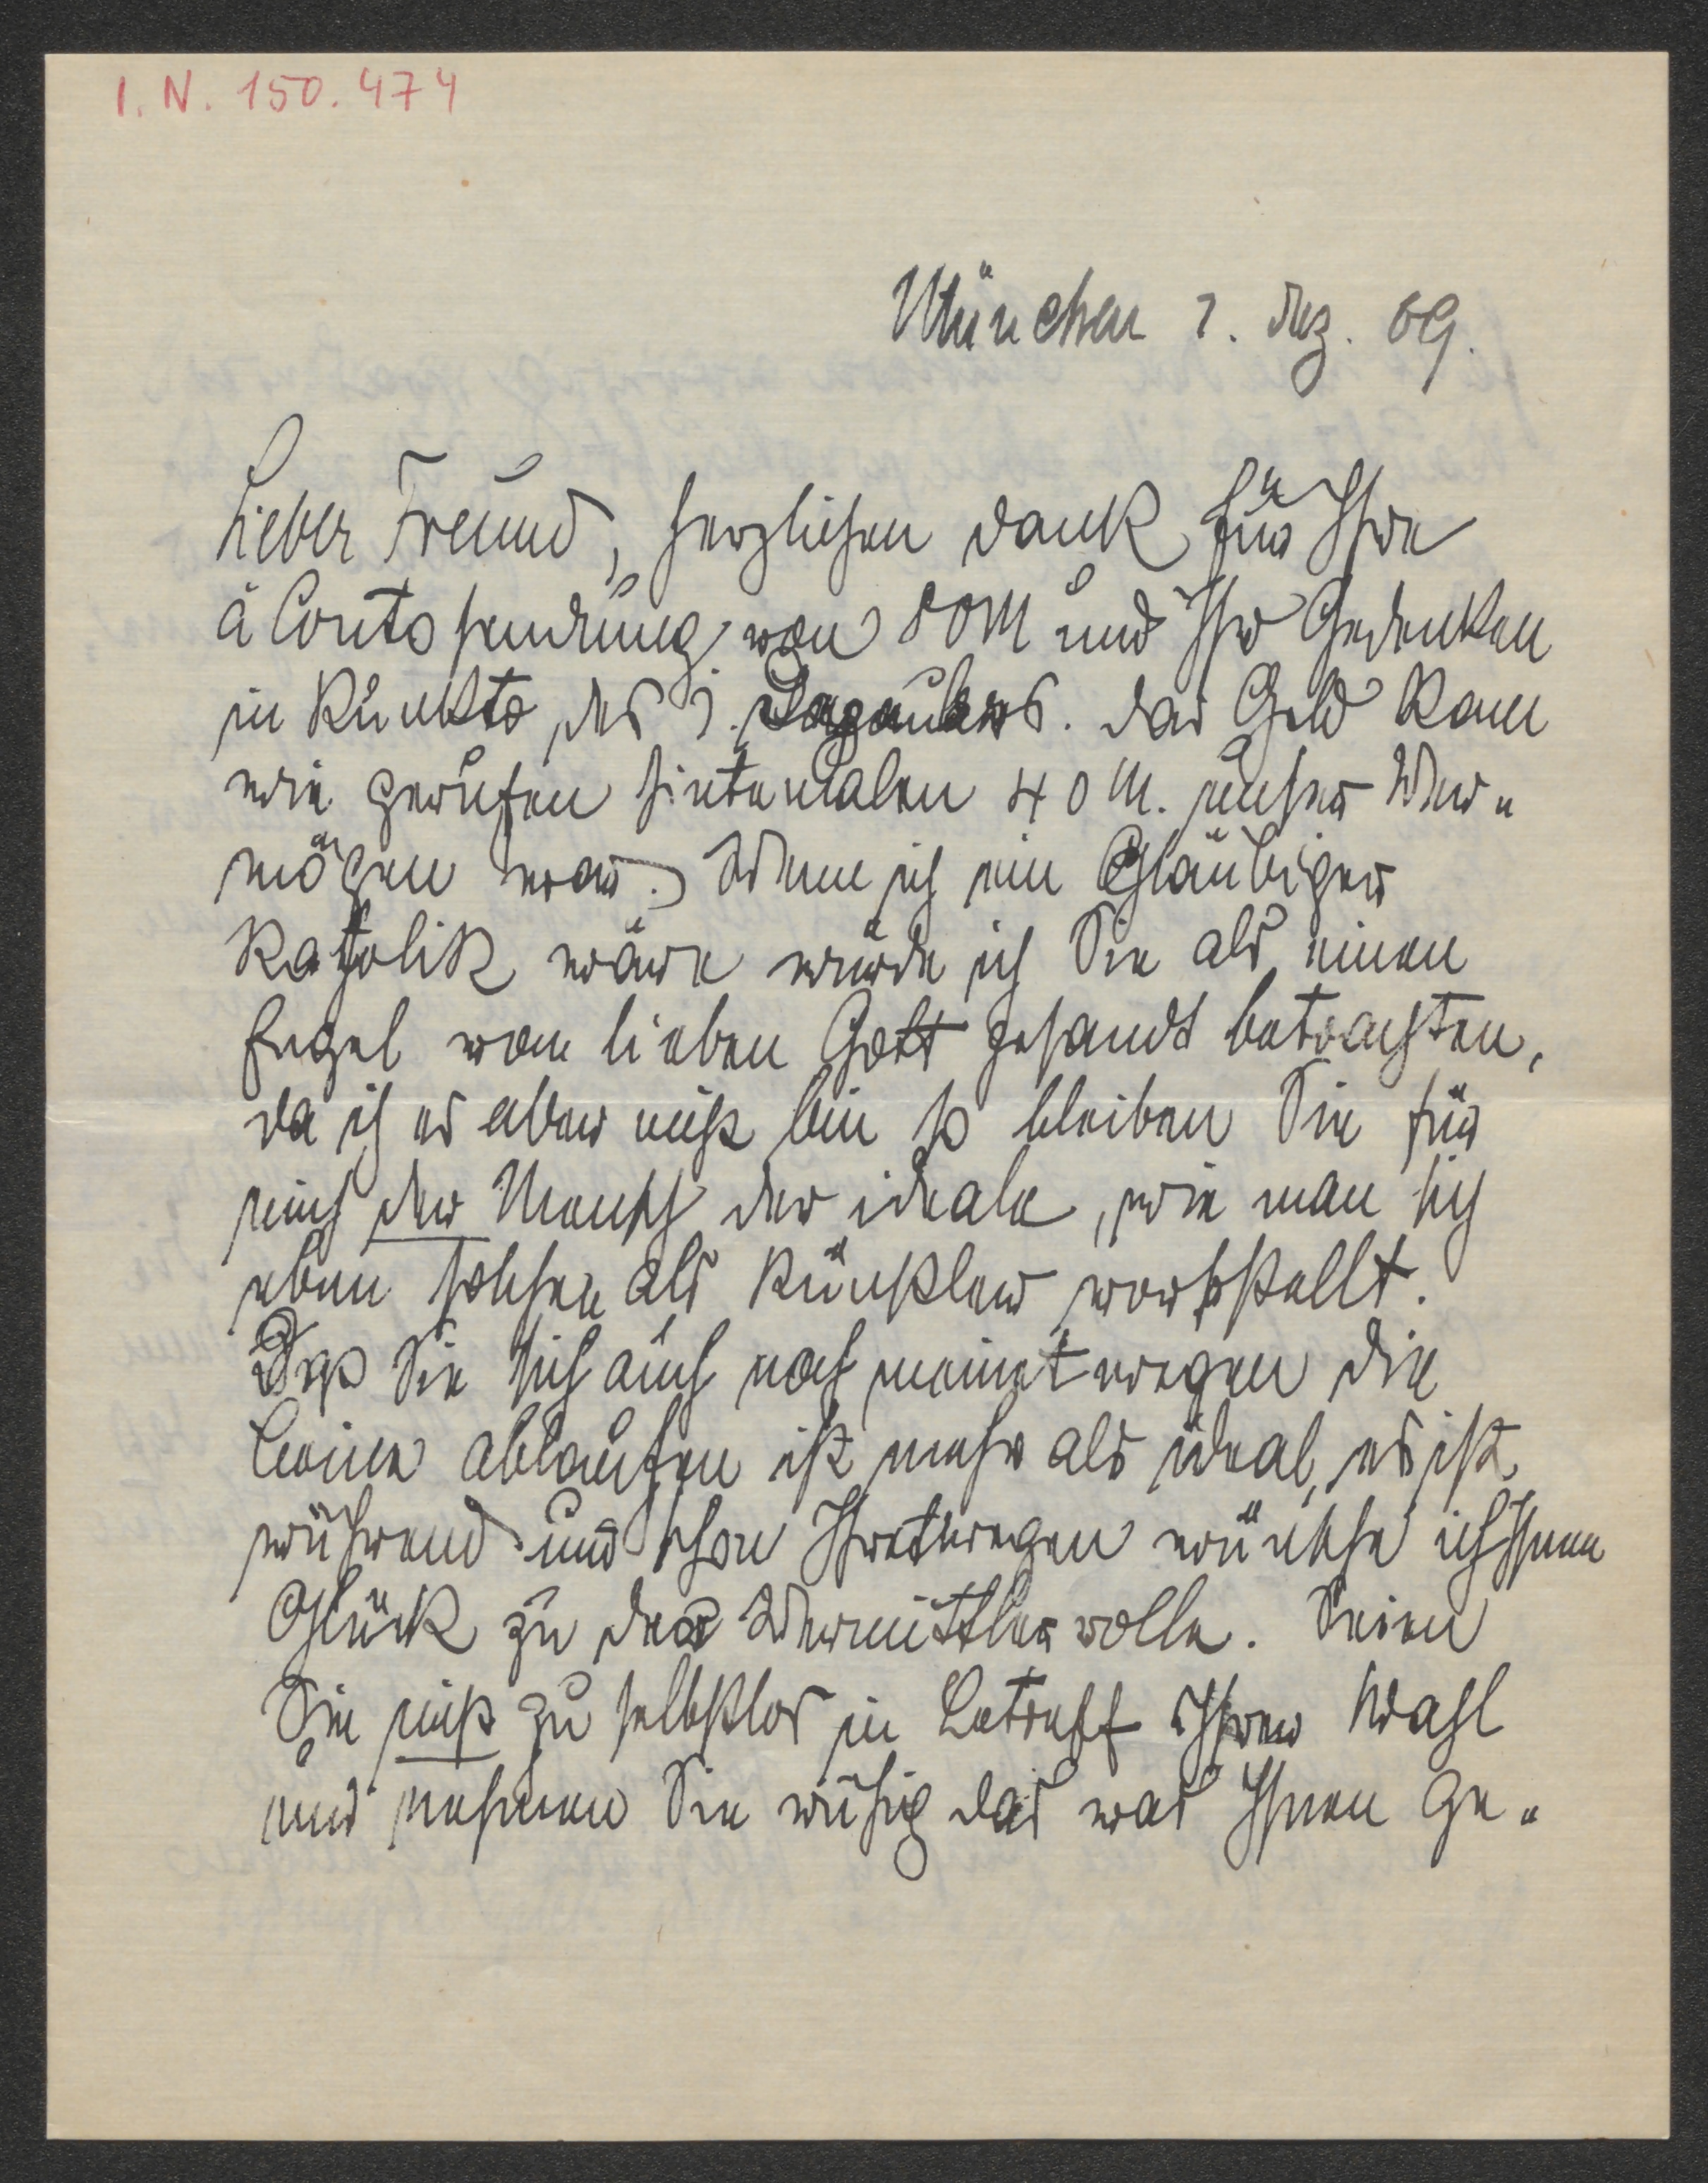 I. N. 150.474
München 7. Dez. 09.
Lieber Freund, herzlichen Dank für Ihre
à Conto sendung von 50 M und Ihr Gedenken
in Punkto des j. Das Geld kam
wie gerufen sintemalen 40 M. unser Ver-
mögen war. Wenn ich ein Gläubiger
Katholik wäre würde ich Sie als einen
Engel vom lieben Gott gesandt betrachten,
da ich es aber nicht bin so bleiben Sie für
mich der Mensch der ideale, wie man sich
eben solchen als Künstler vorstellt.
Daß Sie sich auch noch meinetwegen die
Beine ablaufen ist mehr als ideal, es ist
rührend und schon Ihretwegen wünsche ich Ihnen
Glück zu der Vermittlerrolle. Seien
Sie nicht zu selbstlos in Betreff Ihrer Wahl
und nehmen Sie ruhig das was Ihnen ge-